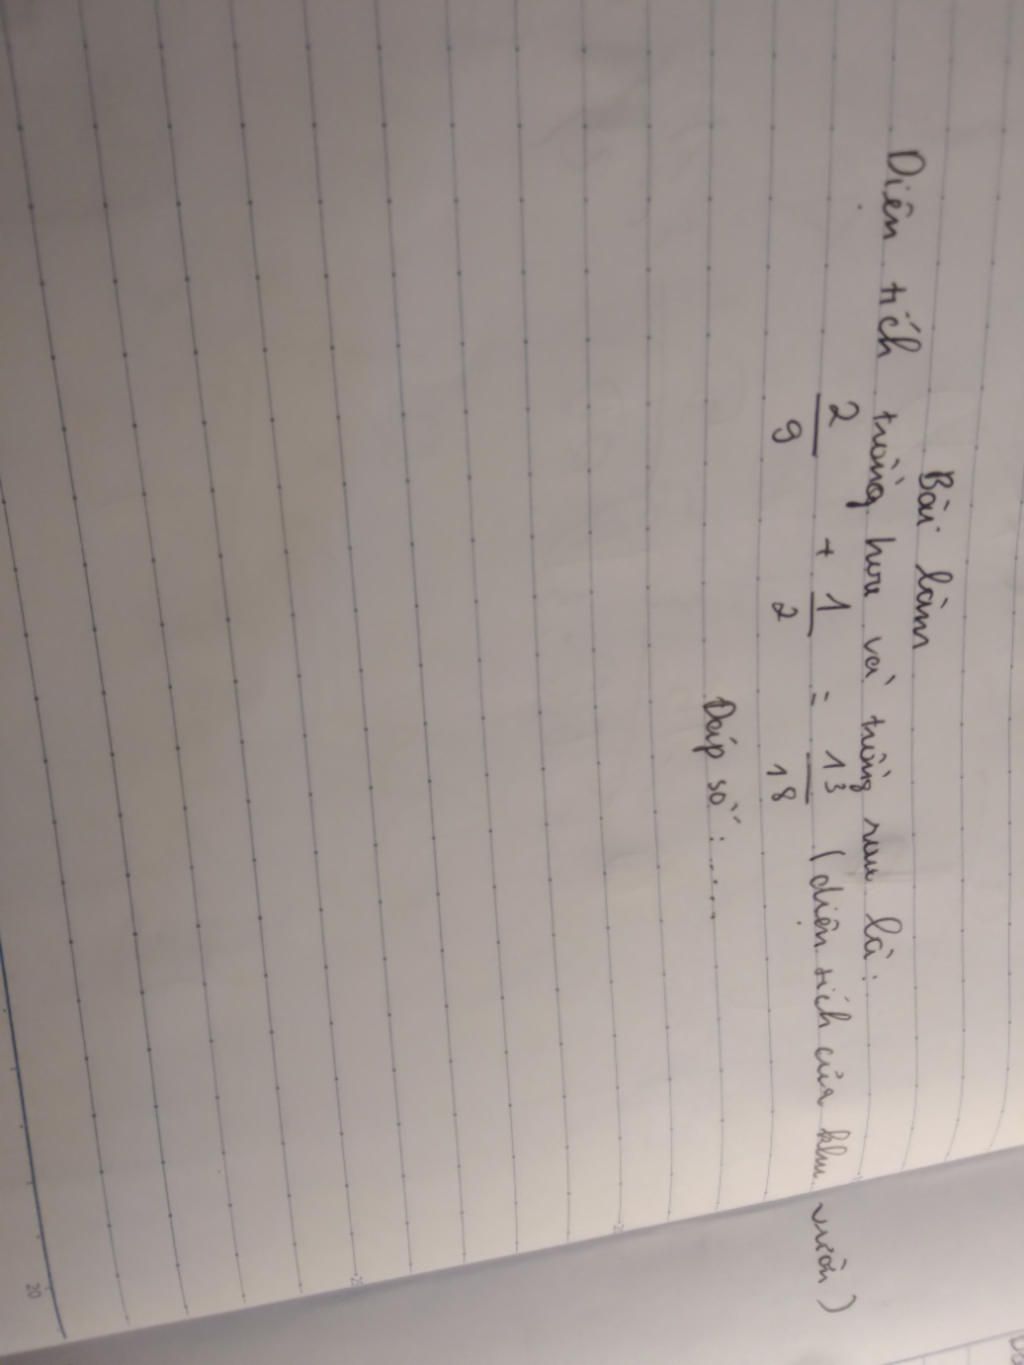 Bài làm
Diện tích trồng hoa và trồng rau là:
2/9 + 1/2 = 13/18 (diện tích của khu vườn)
Đáp số: .....
20